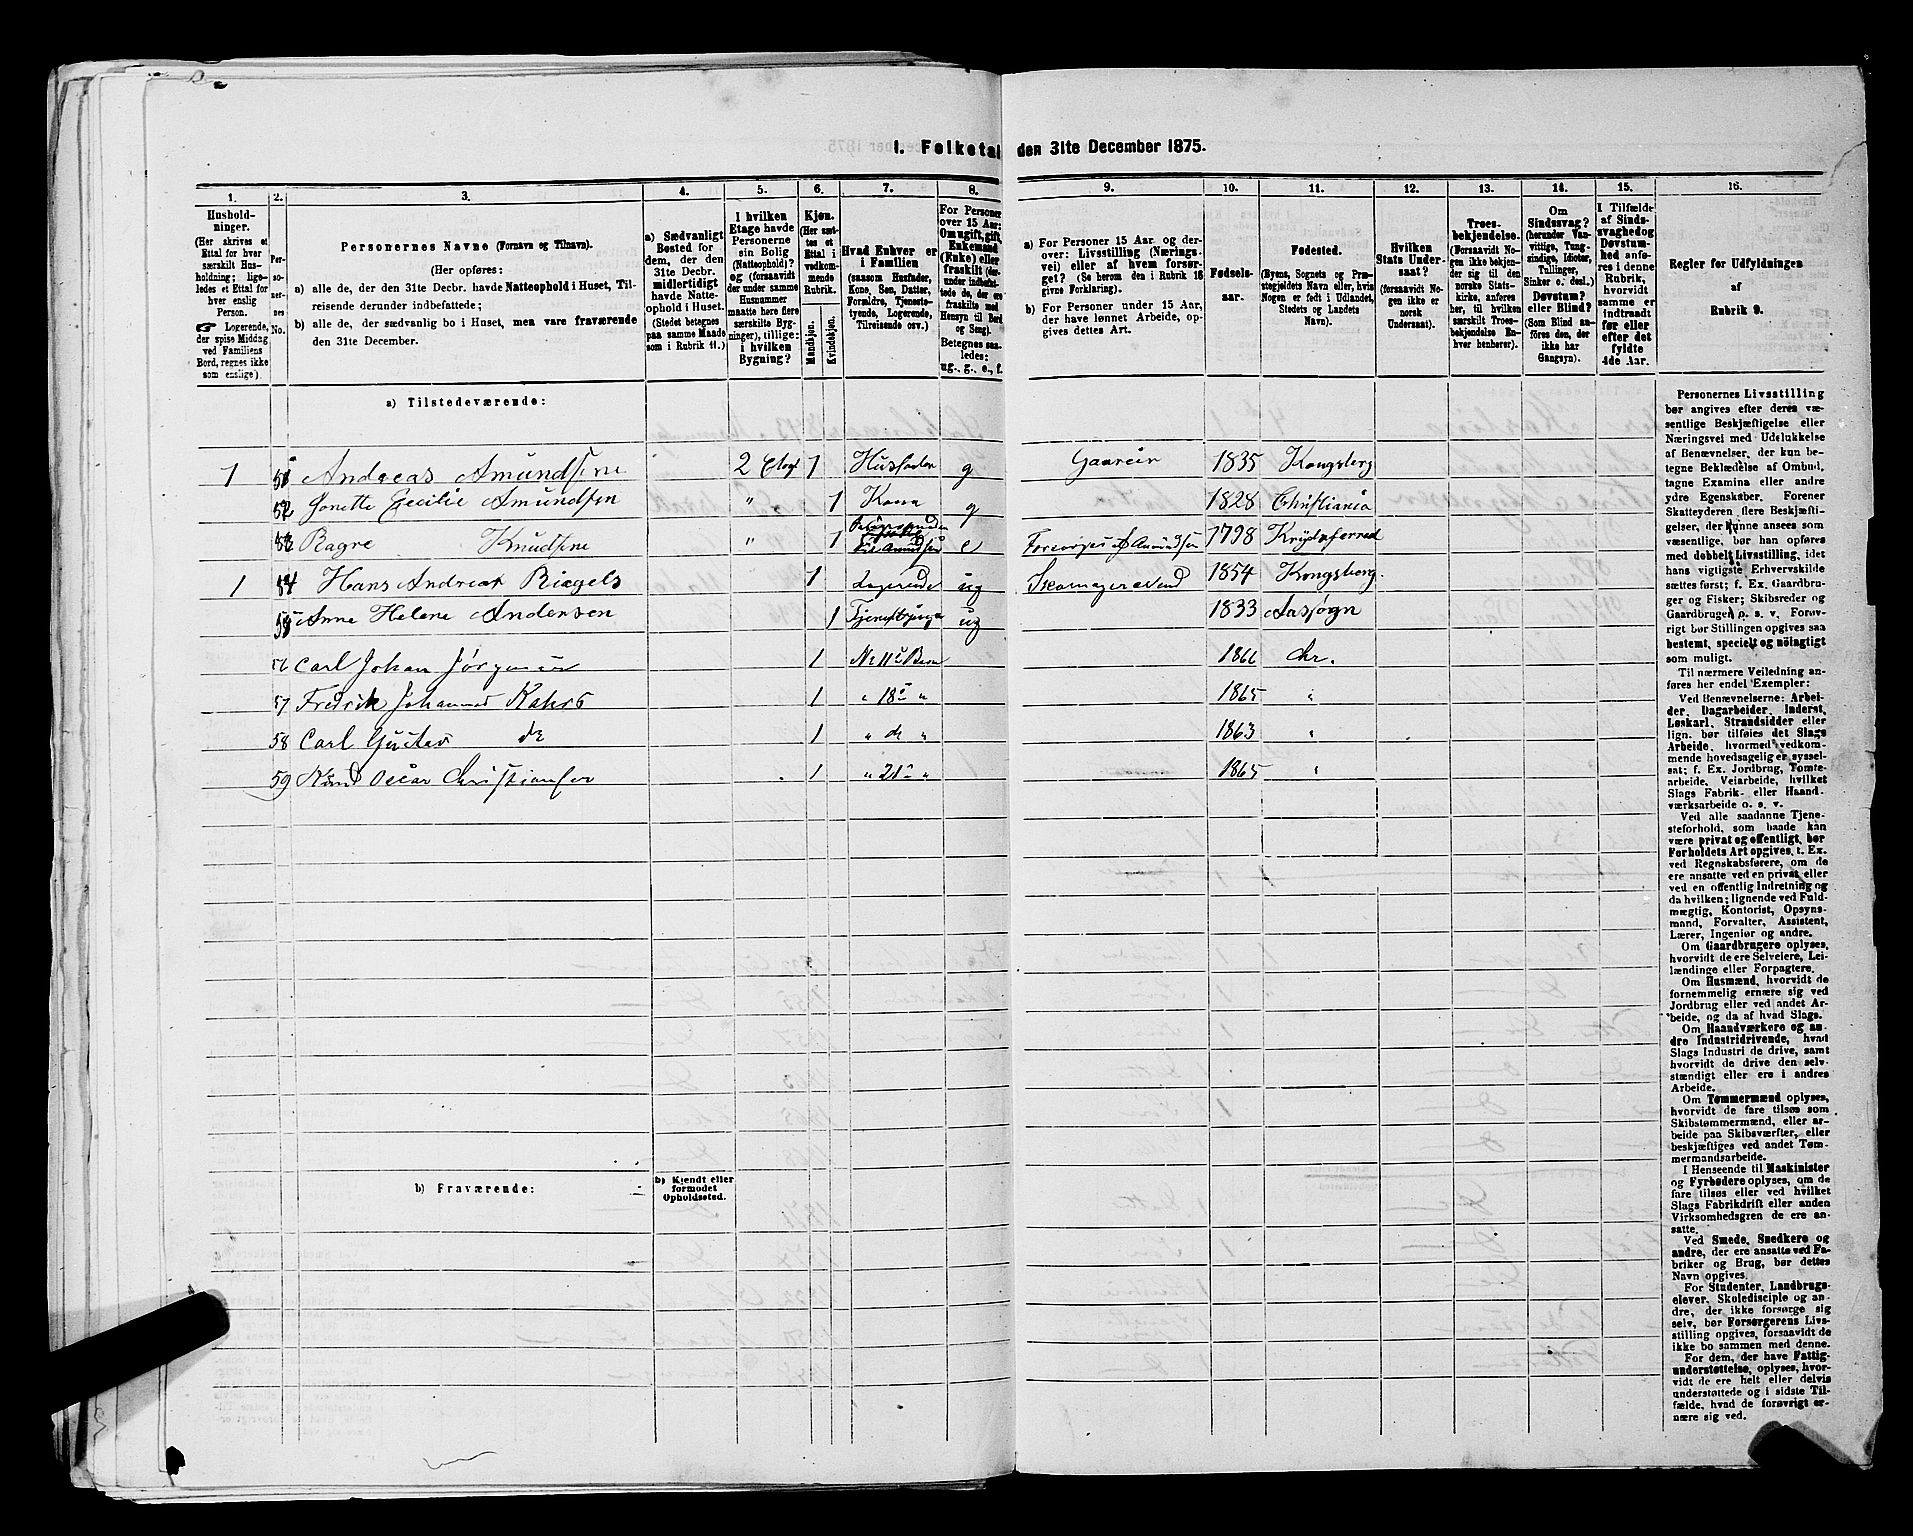 I. Folketal den 31te December 1875.
1. 2. 3. 4. 5. 6. 7. 8. 9. 10. 11. 12. 13. 14. 15. 16.
Hushold-
ninger.
(Her skrives et
Ettal for hver
særskilt Hus-
holdning; lige-
ledes et Ettal for
hver enslig
Person.
☞ Logerende,
der spise Middag
ved Familiens
Bord, regnes ikke
som enslige).
Per-
so-
ner-
nes
No.
Personernes Navne (Fornavn og Tilnavn).
(Her opføres:
a) alle de, der den 31te Decbr. havde Natteophold i Huset, Til-
reisende derunder indbefattede;
b) alle de, der sædvanlig bo i Huset, men vare fraværende
den 31te December.
a) Sædvanligt
Bosted for
dem, der den
31te Decbr.
midlertidigt
havde Natte-
ophold i Huset.
(Stedet betegnes
paa samme Maade
som i Rubrik 11.)
I hvilken
Etage havde
Personerne
sin Bolig
(Natteophold)?
og (forsaavidt
der under samme
Husnummer
maatte høre flere
særskilte Byg-
ninger), tillige:
i hvilken
Bygning?
Kjøn.
(Her sæt-
tes et
Ettal i
vedkom-
mende
Rubrik.
Mandkjøn.
Kvindekjøn.
Hvad Enhver er
i Familien
(saasom Husfader,
Kone, Søn, Datter,
Forældre, Tjeneste-
tyende, Logerende,
Tilreisende osv.)
For Personer
over 15 Aar:
Om ugift, gift,
Enkemand
(Enke) eller
fraskilt (der-
under indbefat-
tede de, der ere
fraskilte med
Hensyn til Bord
og Seng).
Betegnes saa-
ledes:
ug., g., e., f.
a) For Personer 15 Aar og der-
over: Livsstilling (Nærings-
vei) eller af hvem forsør-
get? (Se herom den i Rubrik 16
givne Forklaring).
b) For Personer under 15 Aar,
der have lønnet Arbeide, op-
gives dettes Art.
Fødsels-
aar.
Fødested.
(Byens, Sognets og Præ-
stegjeldets Navn eller, hvis
Nogen er født i Udlandet,
Stedets og Landets
Navn).
Hvilken
Stats Under-
saat?
(forsaavidt No-
gen ikke er
norsk
Undersaat).
Troes-
bekjendelse.
(Forsaavidt No-
gen ikke bekjen-
der sig til den
norske Stats-
kirke, anføres
her, til hvilken
særskilt Troes-
bekjendelse En-
hver henhører).
Om
Sindssvag?
(herunder Van-
vittige, Tung-
sindige, Idioter,
Tullinger,
Sinker o. desl.)
Døvstum?
eller Blind?
(Som Blind an-
føres den, der
ikke har
Gangsyn).
I Tilfælde
af Sinds-
svaghed og
Døvstum-
hed anfø-
res i denne
Rubrik,
hvorvidt
samme er
indtraadt
før eller
efter det
fyldte
4de Aar.
Regler for Udfyldningen
af
Rubrik 9.
a) Tilstedeværende:
1 51 Andreas Amundsen 2 Etage 1 Husfader g Gaareier 1835 Kongsberg
52 Jonette Cecilie Amundsen " 1 Kona g 1828 Christiania
53 Ragne Knudsen " 1 e Forsørges af Amundsen 1798
1 54 Hans Andreas Riegels 1 Logerende ug Skomagersvend 1854 Kongsberg.
55 Anne Helene Andersen 1 Tjenestepige ug 1833
56 Carl Johan Jørgensen 1 Barn Chr.
57 Fredrik Johannes Kahrs 1 " 18 " 1865 "
58 Carl Gustav do 1 " do " 1863 "
59 Knud Oscar Christiansen 1 " 21 " 1865 "
b) Fraværende:
b) Kjendt eller
formodet
Opholdssted.
Personernes Livsstilling
bør angives efter deres væ-
sentlige Beskjæftigelse eller
Næringsvei med Udelukkelse
af Benævnelser, der kun be-
tegne Beklædelse af Ombud,
tagne Examina eller andre
ydre Egenskaber. Forener
Skatteyderen flere Beskjæfti-
gelser, der kunne ansees som
væsentlige, bør han opføres
med dobbelt Livsstilling, idet
hans vigtigste Erhvervskilde
sættes først; f. Ex. Gaardbru-
ger og Fisker; Skibsreder og
Gaardbruger o. s. v. Forøv-
rigt bør Stillingen opgives saa
bestemt, specielt og nøiagtigt
som muligt.
Til nærmere Veiledning an-
føres her endel Exempler:
Ved Benævnelserne: Arbei-
der, Dagarbeider, Inderst,
Løskarl, Strandsidder eller
lign. bør tilføies det Slags
Arbeide, hvormed vedkom-
mende hovedsagelig er syssel-
sat; f. Ex. Jordbrug, Tomte-
arbeide, Veiarbeide, hvilket
Slags Fabrik- eller Haand-
værksarbeide o. s. v.
Ved alle saadanne Tjene-
steforhold, som baade kan
være privat og offentligt, bør
Forholdets Art opgives, t. Ex.
ved Regnskabsførere, om de
ere ansatte ved en privat eller
ved en offentlig Indretning og
da hvilken; lignende ved Fuld-
mægtig, Kontorist, Opsyns-
mand, Forvalter, Assistent,
Lærer, Ingeniør og andre.
Om Gaardbrugere oplyses,
hvorvidt de ere Selveiere, Lei-
lændinge eller Forpagtere.
Om Husmænd, hvorvidt de
fornemmelig ernære sig ved
Jordbrug eller ved andet Ar-
beide, og da af hvad Slags.
Om Haandværkere og an-
dre Industridrivende, hvad
Slags Industri de drive, samt
hvorvidt de drive den selv-
stændigt eller ere i andres
Arbeide.
Om Tømmermænd oplyses,
hvorvidt de fare tilsøs som
Skibstømmermænd, eller ar-
beide paa Skibsværfter, eller
beskjæftiges ved andet Tøm-
mermandsarbeide.
I Henseende til Maskinister
og Fyrbødere oplyses, om de
fare tilsøs eller ved hvilket
Slags Fabrikdrift eller anden
Virksomhedsgren de ere an-
satte.
Ved Smede, Snedkere og
andre, der ere ansatte ved Fa-
briker og Brug, bør dettes
Navn opgives.
For Studenter, Landbrugs-
elever, Skoledisciple og an-
dre, der ikke forsørge sig
selv, bør Forsørgerens Livs-
stilling opgives, forsaavidt de
ikke bo sammen med denne.
For dem, der have Fattig-
understøttelse, oplyses, hvor-
vidt de ere helt eller delvis
understøttede og i sidste Til-
fælde, hvad de forøvrigt er-
nære sig ved.